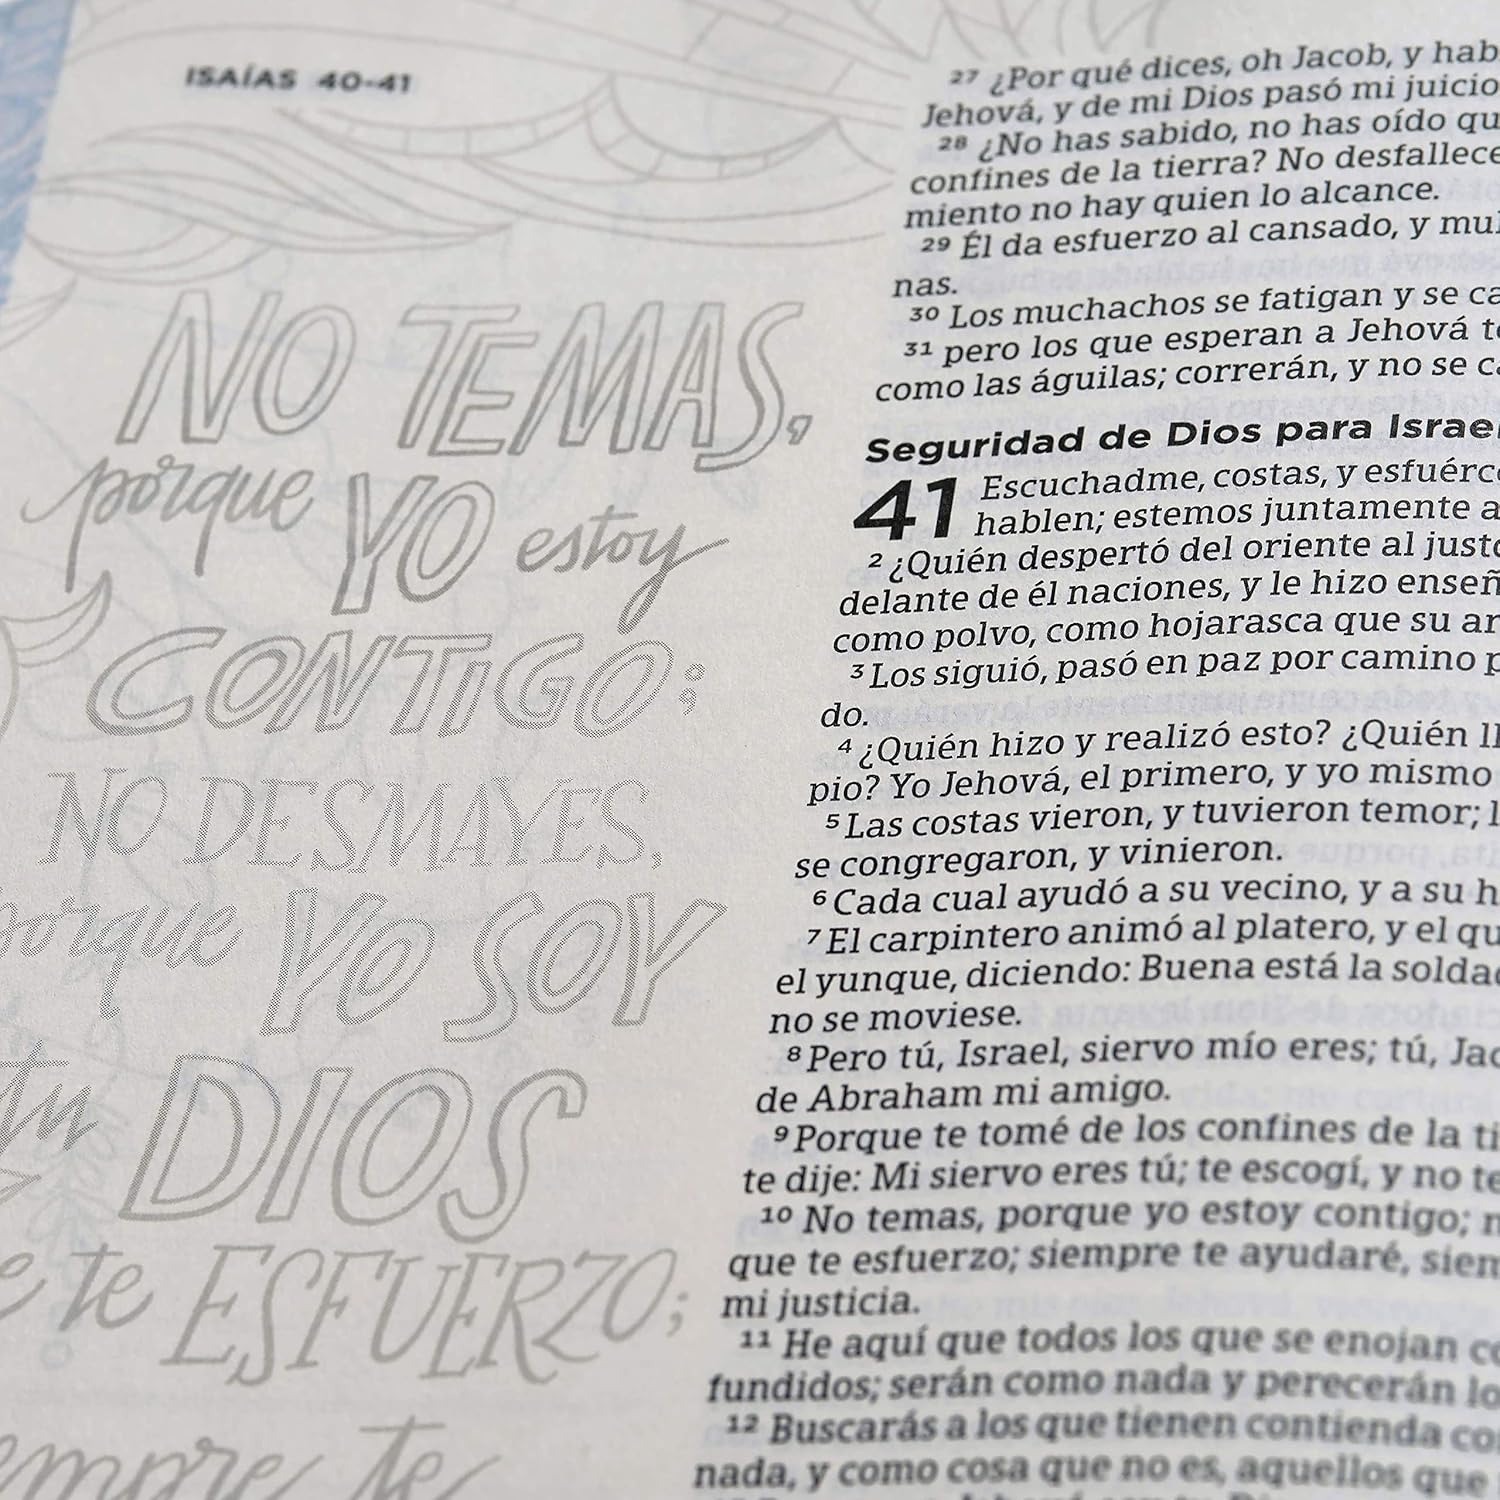 ISAÍAS 40-41
NO TEMAS,
porque YO estoy
CONTIGO;
NO DESMAYES,
porque YO SOY
tu DIOS
te ESFUERZO;
te
27 ¿Por qué dices, oh Jacob, y
Jehová, y de mi Dios pasó mi juicio
28 ¿No has sabido, no has oído
confines de la tierra? No desfallece
miento no hay quien lo alcance.
29 Él da esfuerzo al cansado, y
nas.
30 Los muchachos se fatigan y se
31 pero los que esperan a Jehová
como las águilas; correrán, y no se
Seguridad de Dios para Israel
41 Escuchadme, costas, y
hablen; estemos juntamente a
2 ¿Quién despertó del oriente al
delante de él naciones, y le hizo
como polvo, como hojarasca que su
3 Los siguió, pasó en paz por camino
do.
4 ¿Quién hizo y realizó esto? ¿Quién
pio? Yo Jehová, el primero, y yo mismo
5 Las costas vieron, y tuvieron temor;
se congregaron, y vinieron.
6 Cada cual ayudó a su vecino, y a su
7 El carpintero animó al platero, y el
el yunque, diciendo: Buena está la
no se moviese.
8 Pero tú, Israel, siervo mío eres; tú,
de Abraham mi amigo.
9 Porque te tomé de los confines de la
te dije: Mi siervo eres tú; te escogí, y no te
10 No temas, porque yo estoy contigo;
que te esfuerzo; siempre te ayudaré,
mi justicia.
11 He aquí que todos los que se enojan
fundidos; serán como nada y perecerán
12 Buscarás a los que tienen contienda
nada, y como cosa que no es, aquellos que